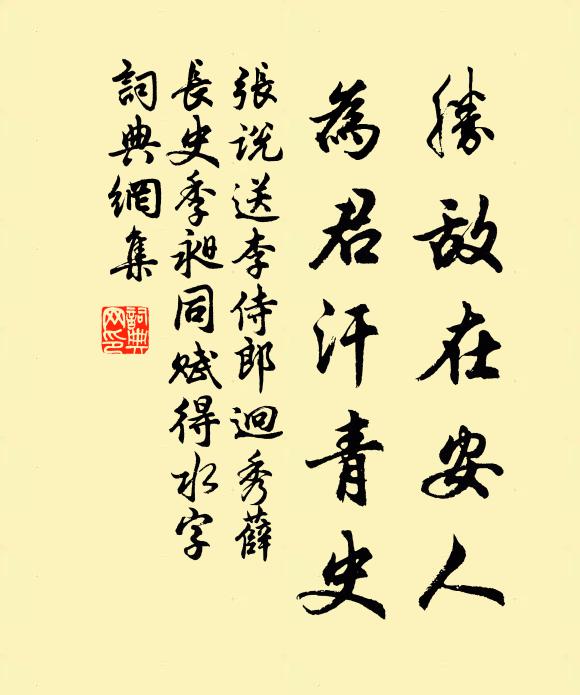 勝敵在安人
為君汗青史
張说送李侍郎迥秀薛
長史季昶同赋得水字
詞典網集
詞典
网印